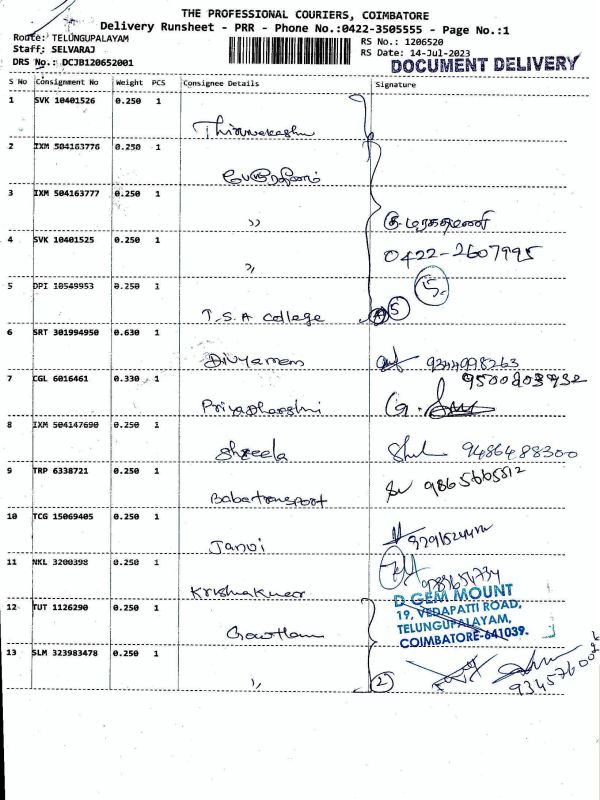 THE PROFESSIONAL COURIERS, COIMBATORE
Delivery Runsheet - PRR - Phone No.:0422-3505555 - Page No.:1
Route: TELUNGUPALAYAM
RS No.: 1206520
Staff: SELVARAJ
RS Date: 14-Jul-2023
DRS No.: DCJB120652001
DOCUMENT DELIVERY
S No Consignment No Weight PCS Consignee Details Signature
1 SVK 10401526 0.250 1
2 IXM 504163776 0.250 1
3 IXM 504163777 0.250 1
,,
4 SVK 10401525 0.250 1
0422-2607995
,,
5 DPI 10549953 0.250 1
5.
T.S.A College 5
6 SRT 301994950 0.630 1
9344998263
7 CGL 6016461 0.330 1
Priyadharshni
8 IXM 504147690 0.250 1
Shreela 9486488300
9 TRP 6338721 0.250 1
9865665512
Babatransport
10 TCG 15069405 0.250 1
Janvi
11 NKL 3200398 0.250 1
D GEM MOUNT
19, VEDAPATTI ROAD,
TELUNGUPALAYAM,
COIMBATORE-641039.
12 TUT 1126290 0.250 1
Gowtham
13 SLM 323983478 0.250 1
,, 2